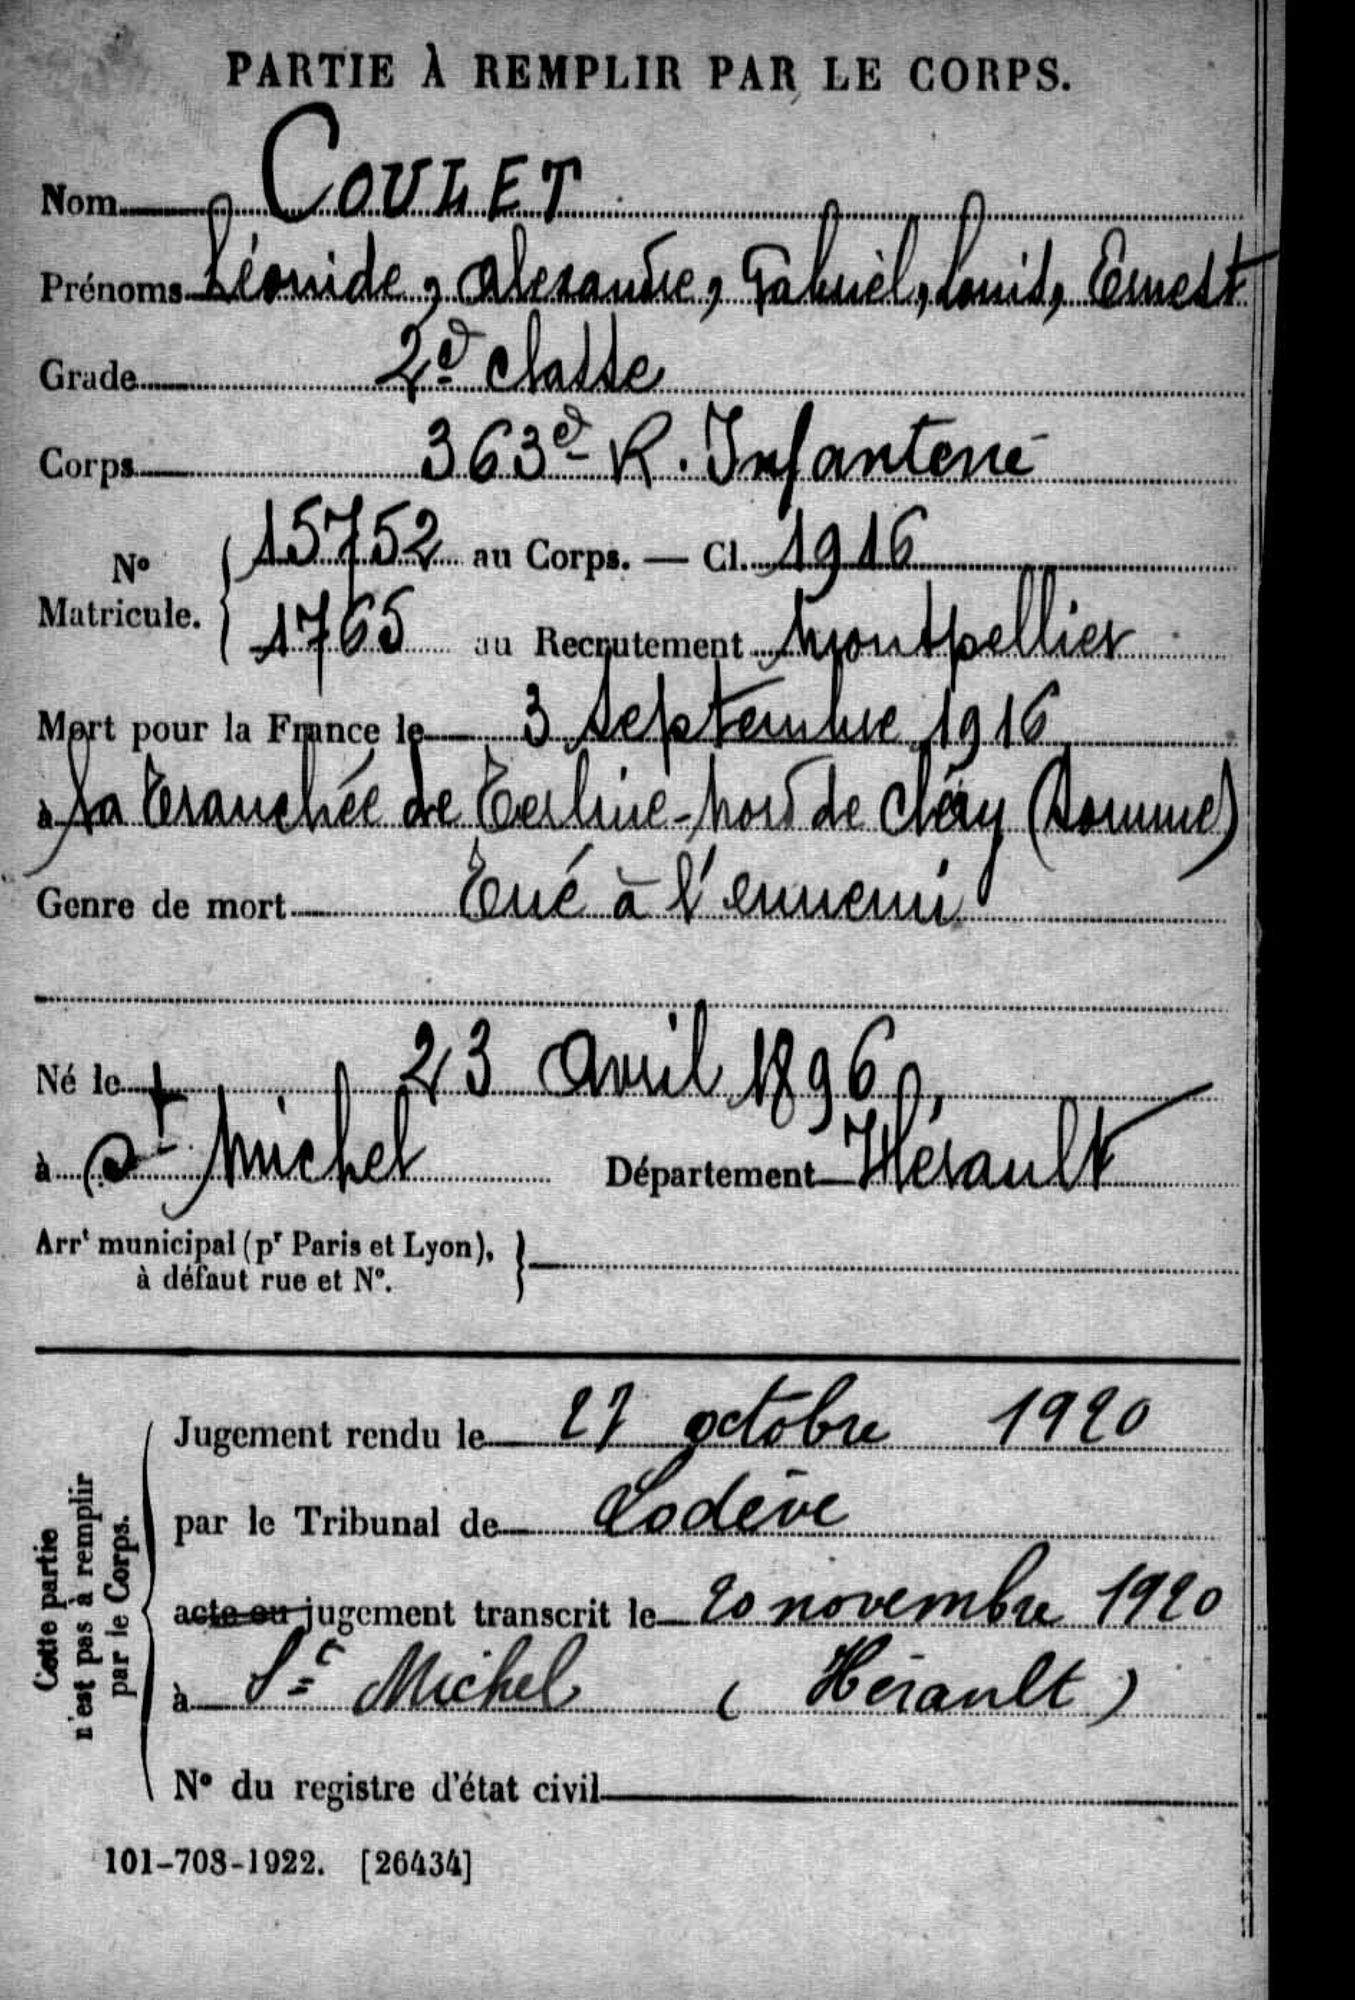 PARTIE À REMPLIR PAR LE CORPS.
Nom COULET
Prénoms Léonide, Alexandre, Gabriel, Louis, Ernest
Grade 2e classe
Corps 363e R. Infanterie
No Matricule. { 15752 au Corps. — Cl. 1916
1765 au Recrutement Montpellier
Mort pour la France le 3 Septembre 1916
à la tranchée de Terline - Nord de Cléry (Somme)
Genre de mort Tué à l'ennemi
Né le 23 Avril 1896
à St Michel Département Hérault
Arrt municipal (pr Paris et Lyon),
à défaut rue et No.
Cette partie
n'est pas à remplir
par le Corps.
Jugement rendu le 27 octobre 1920
par le Tribunal de Lodève
acte ou jugement transcrit le 20 novembre 1920
à St Michel (Hérault)
No du registre d'état civil
101-708-1922. [26434]